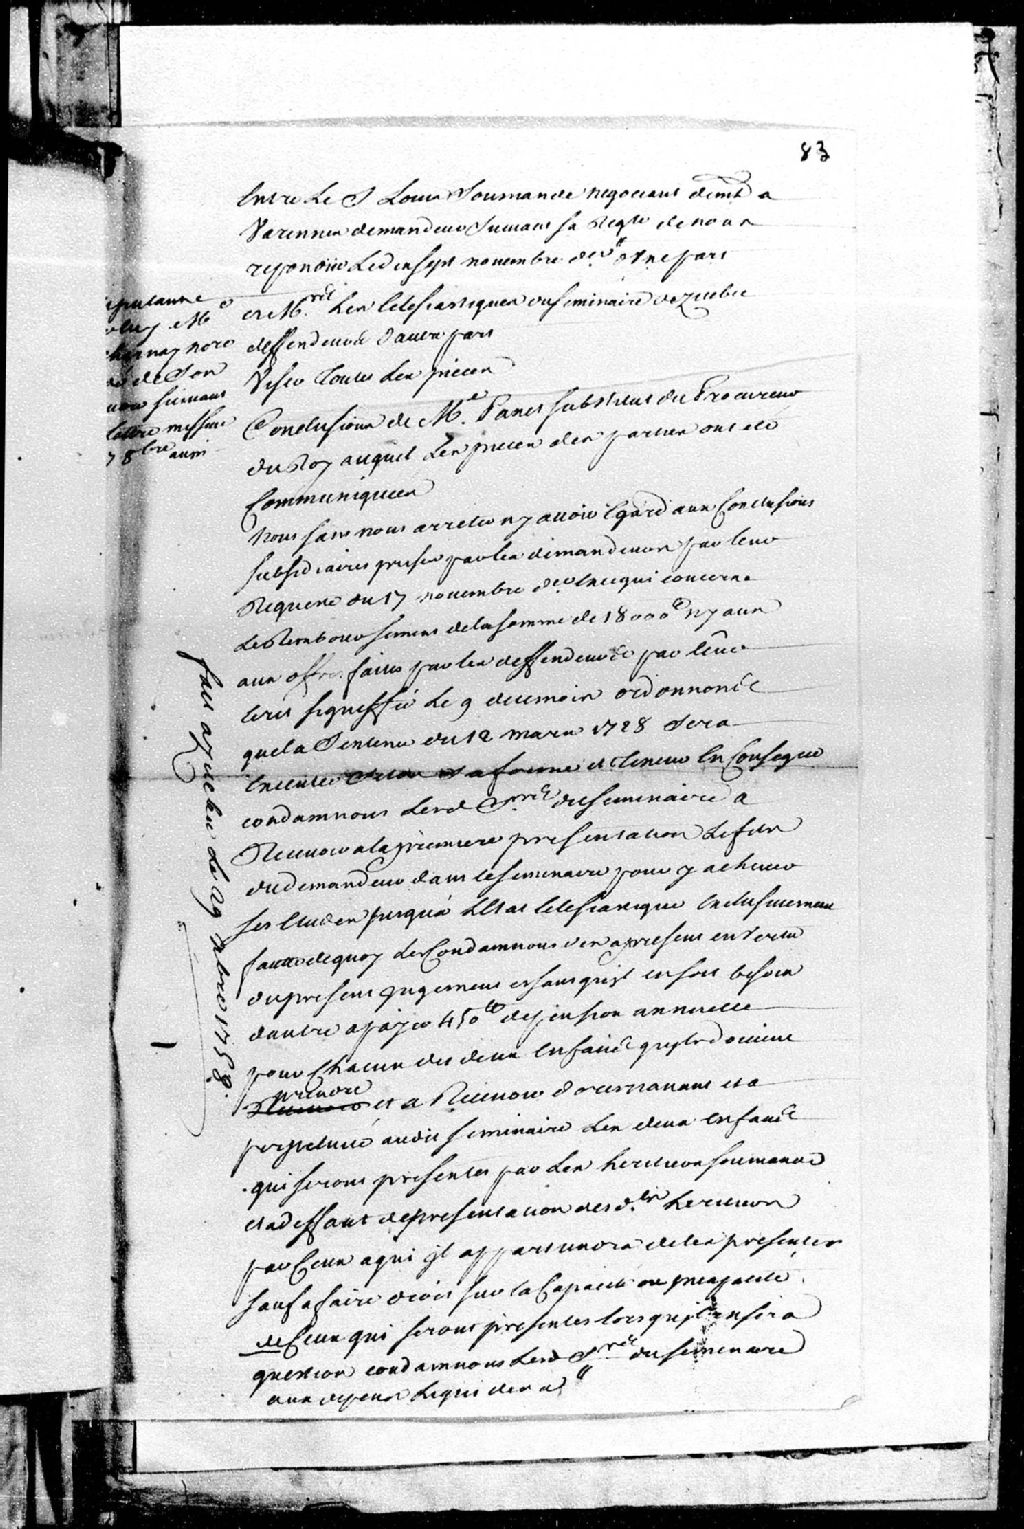 83
Entre Le S Louis Soumande negociant demt a
Varennes demandeur Suivant sa Reqte de nous
repondue Led en sept novembre der d'une part
et Mrs Les Eclesiastiques du seminaire de quebec
deffendeurs d'autre part
Veseu Toutes Les pieces
Conclusions de Me Panet substitut du Procureur
du Roy auquel Les pieces des parties ont eté
Communiquées
Nous sans nous arreter ny avoir Egard aux Conclusions
subsidiaires prises par les demandeurs par leur
Requete du 17 novembre der En ce qui concerne
Le Remboursement de la somme de 18000 ny aux
aux offres faites par les deffendeurs par leurs
ecrit signeffié Le 9 du mois ordonnons
que la Sentence du 12 mars 1728 sera
Executée selon sa forme et teneur En Conseqce
condamnons Lesd Srs du seminaire a
Recevoir a la premiere presentation Le fils
du demandeur dans le seminaire pour y achever
ses Etudes jusqu'a L'Etat Eclesiastique Inclusivement
faute de quoy Les Condamnons des apresent en Vertu
du present jugement et sans qu'il en soit besoin
d'autre a payer 450 de pension annuelle
pour Chacun des deux Enfans
prendre
Recevoir et a Recevoir doresnavant et a
perpetuité audit seminaire Les deux Enfans
qui seront presentés par Les heritiers soumande
et a deffaut de presentation desd. Les heritiers
par Ceux a qui il appartiendra de les presenter
sauf a faire droit sur la Capacité ou incapacité
de Ceux qui seront presentés lorsqu'il en sera
question condamnons Lesd Srs du seminaire
aux depens Liquidés a
Son
suivant
Lettre missive
78bre
fait a quebec Le 29 9bre 1758.